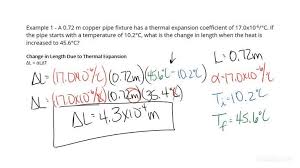 Example 1 - A 0.72 m copper pipe fixture has a thermal expansion coefficient of 17.0x10⁻⁶/°C. If
the pipe starts with a temperature of 10.2°C, what is the change in length when the heat is
increased to 45.6°C?
Change in Length Due to Thermal Expansion
ΔL = αLΔT
ΔL = (17.0×10⁻⁶/°C)(0.72m)(45.6°C-10.2°C)
ΔL = (17.0×10⁻⁶/°C)(0.72m)(35.4°C)
ΔL = 4.3×10⁻⁴ m
L = 0.72m
α = 17.0×10⁻⁶/°C
Ti = 10.2°C
Tf = 45.6°C